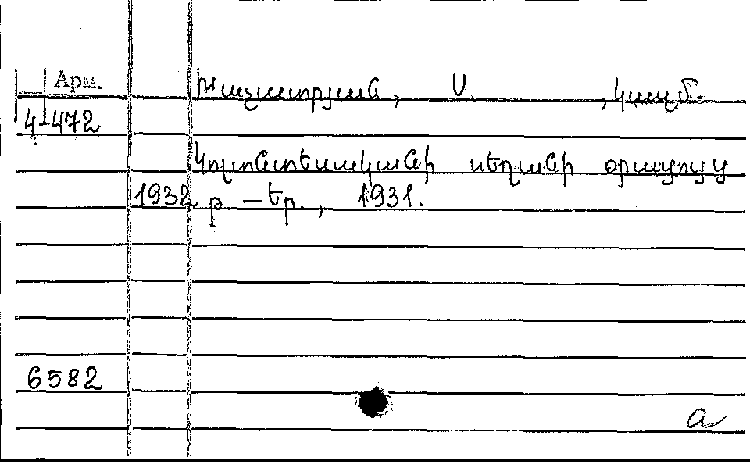 Арм.
Խաչատրյան, Ս. , կազմ.
4-472
Կոլտնտեսականի սեղանի օրացույց
1932 թ. – Եր., 1931.
6582
а